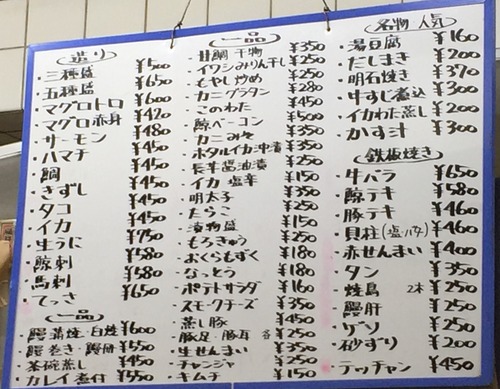 造り
・三種盛 ¥500
・五種盛 ¥650
・マグロトロ ¥600
・マグロ赤身 ¥420
・サーモン ¥480
・ハマチ ¥450
・鯛 ¥450
・きずし ¥450
・タコ ¥450
・イカ ¥450
・生うに ¥750
・鯨刺 ¥580
・馬刺 ¥580
・てっさ ¥650
一品
・鰻蒲焼・白焼 ¥600
・鰻巻き・鰻冊 ¥550
・茶碗蒸し ¥450
・カレイ煮付 ¥550
一品
・甘鯛干物 ¥350
・イワシみりん干し ¥250
・もやし炒め ¥250
・カニグラタン ¥280
・このわた ¥450
・鯨ベーコン ¥500
・カニみそ ¥350
・ホタルイカ沖漬 ¥350
・長芋醤油漬 ¥250
・イカ塩辛 ¥150
・明太子 ¥350
・たらこ ¥250
・漬物盛 ¥150
・もろきゅう ¥250
・おくらもずく ¥180
・なっとう ¥180
・ポテトサラダ ¥160
・スモークチーズ ¥350
・蒸し豚 ¥450
・豚足・豚耳 各¥250
・生せんまい ¥350
・チャンジャ ¥250
・キムチ ¥150
名物 人気
・湯豆腐 ¥160
・だしまき ¥200
・明石焼き ¥370
・牛すじ煮込 ¥300
・イカわた蒸し ¥200
・かす汁 ¥300
鉄板焼き
・牛バラ ¥650
・鯨テキ ¥580
・豚テキ ¥460
・貝柱(塩・バター) ¥460
・赤せんまい ¥400
・タン ¥350
・焼鳥 2本 ¥250
・鰻肝 ¥250
・ゲソ ¥250
・砂ずり ¥200
・テッチャン ¥450